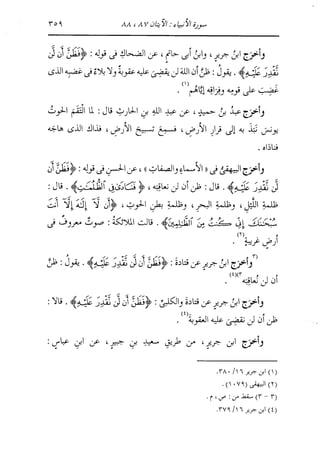 سورة الأنبياء : الآيتان ٨٧ ، ٨٨ ٣٥٩
وأخرج ابنُ جريرٍ ، وابنُ أبى حاتمٍ ، عن الضحاكِ فى قولِه : ﴿فَظَنَّ أَن لَّن
نَّقْدِرَ عَلَيْهِ﴾ . يقولُ : ظنَّ أن اللهَ لن يقضىَ عليه عقوبةً ولا بلاءً فى غضبِه الذى
غضِب على قومِه وفراقِه إيَّاهم(١) .
وأخرج عبدُ بنُ حميدٍ ، عن عبدِ اللهِ بنِ الحارثِ قال : لما التقَم الحوتُ
يونسَ نبَذ به إلى قرارِ الأرضِ ، فسمِع تسبيحَ الأرضِ ، فذاك الذى هاجَه
فناداه .
وأخرج البيهقىُّ فى « الأسماءِ والصفاتِ » ، عن الحسنِ فى قولِه : ﴿فَظَنَّ أَن
لَّن نَّقْدِرَ عَلَيْهِ﴾ . قال : ظن أن لن نعاقبَه ، ﴿فَنَادَىٰ فِى ٱلظُّلُمَٰتِ﴾ . قال :
ظلمةِ الليلِ ، وظلمةِ البحرِ ، وظلمةِ بطنِ الحوتِ ، ﴿أَن لَّآ إِلَٰهَ إِلَّآ أَنتَ
سُبْحَٰنَكَ إِنِّى كُنتُ مِنَ ٱلظَّٰلِمِينَ﴾ . قالت الملائكةُ : صوتٌ معروفٌ فى
أرضٍ غريبةٍ(٢) .
(٣)وأخرج ابنُ جريرٍ عن قتادةَ : ﴿فَظَنَّ أَن لَّن نَّقْدِرَ عَلَيْهِ﴾ . يقولُ : ظنَّ
أن لن نُعاقبَه(٣)(٤) .
وأخرج ابنُ جريرٍ عن قتادةَ والكلبىِّ : ﴿فَظَنَّ أَن لَّن نَّقْدِرَ عَلَيْهِ﴾ . قالا :
ظن أن لن نقضىَ عليه العقوبةَ(٤) .
وأخرج ابن جريرٍ ، من طريقِ سعيدِ بنِ جبيرٍ ، عن ابنِ عباسٍ :
(١) ابن جرير ١٦/ ٣٨٠.
(٢) البيهقى (١٠٧٩) .
(٣ - ٣) سقط من : ص ، م .
(٤) ابن جرير ١٦/ ٣٧٩.